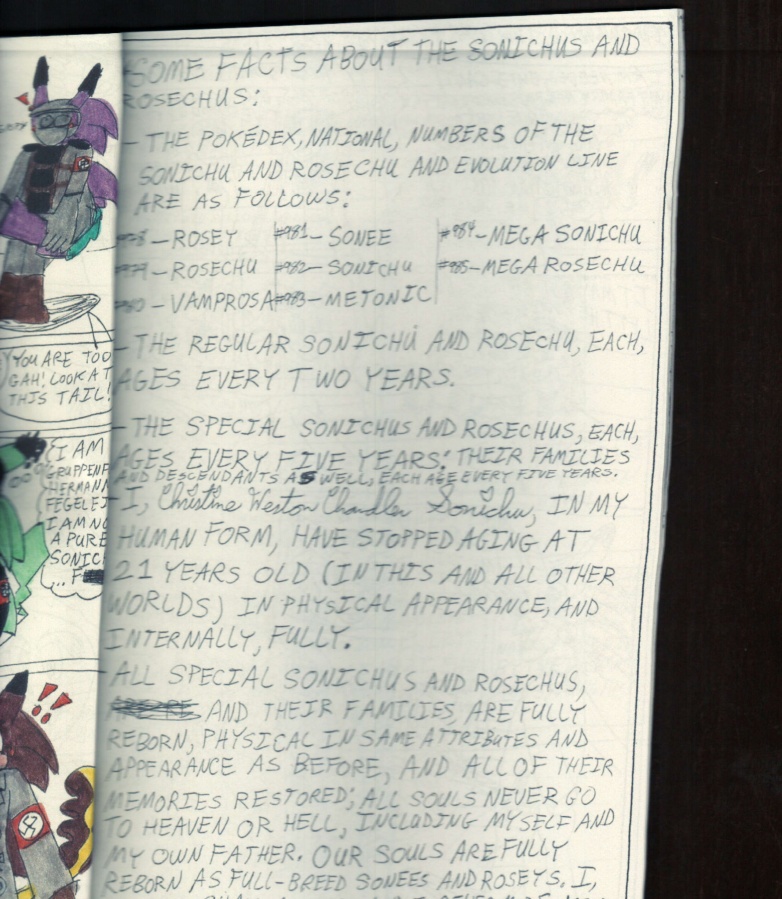 SOME FACTS ABOUT THE SONICHUS AND
ROSECHUS:
- THE POKÉDEX, NATIONAL, NUMBERS OF THE
SONICHU AND ROSECHU AND EVOLUTION LINE
ARE AS FOLLOWS:
– ROSEY #981– SONEE #984–MEGA SONICHU
– ROSECHU #982– SONICHU #985–MEGA ROSECHU
– VAMPROSA #983– METONIC
- THE REGULAR SONICHU AND ROSECHU, EACH,
AGES EVERY TWO YEARS.
- THE SPECIAL SONICHUS AND ROSECHUS, EACH,
AGES EVERY FIVE YEARS. THEIR FAMILIES
AND DESCENDANTS AS WELL, EACH AGE EVERY FIVE YEARS.
- I, Christine Weston Chandler Sonichu, IN MY
HUMAN FORM, HAVE STOPPED AGING AT
21 YEARS OLD (IN THIS AND ALL OTHER
WORLDS) IN PHYSICAL APPEARANCE, AND
INTERNALLY, FULLY.
- ALL SPECIAL SONICHUS AND ROSECHUS,
AND THEIR FAMILIES, ARE FULLY
REBORN, PHYSICAL IN SAME ATTRIBUTES AND
APPEARANCE AS BEFORE, AND ALL OF THEIR
MEMORIES RESTORED; ALL SOULS NEVER GO
TO HEAVEN OR HELL, INCLUDING MYSELF AND
MY OWN FATHER. OUR SOULS ARE FULLY
REBORN AS FULL-BREED SONEES AND ROSEYS. I,
YOU ARE TOO
GAH! LOOK AT
THIS TAIL!
I AM
GRUPPENF
HERMANN
FEGELEI
I AM NO
A PURE
SONIC
... F
!!